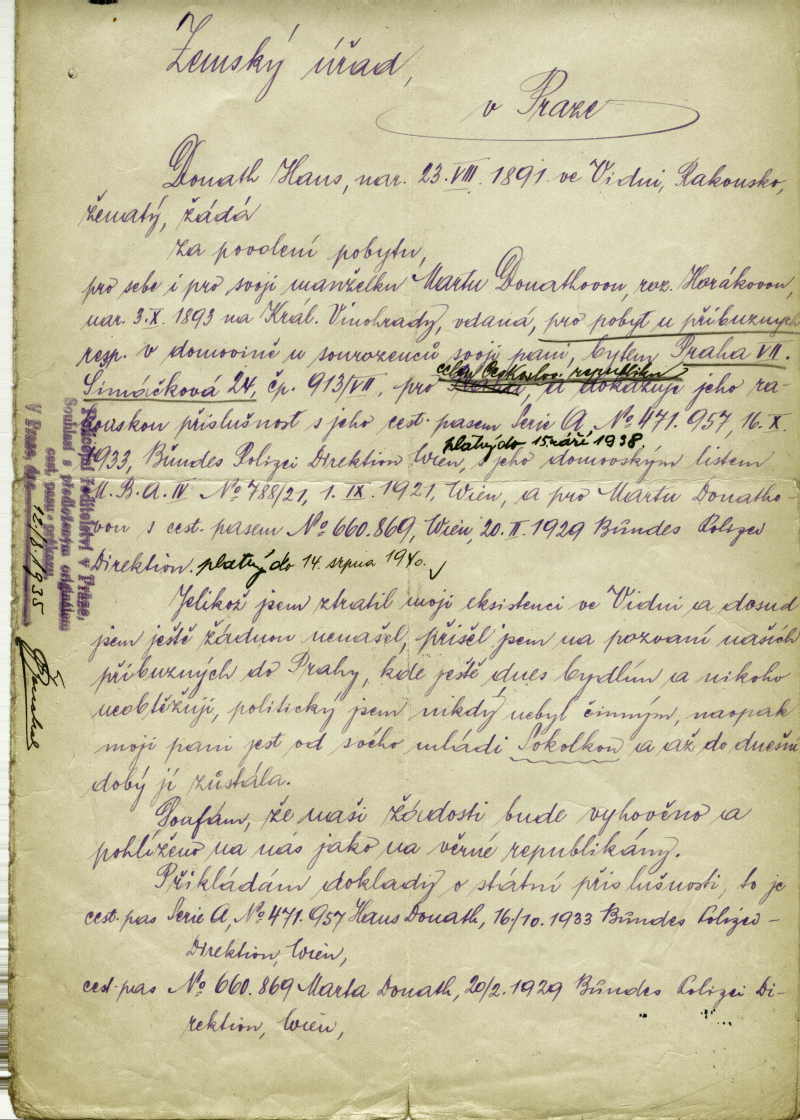 Zemský úřad,
v Praze
Donath Hans, nar. 23. VIII. 1891. ve Vidni, Rakousko,
ženatý, žádá
za povolení pobytu,
pro sebe i pro svoji manželku Martu Donathovou, roz. Horákovou,
nar. 3. X. 1893 na Král. Vinohrady, vdaná, pro pobyt u příbuzných
resp. v domovině u sourozenců svojí paní, bytem Praha VII.
celou Českoslov. republiku
Simáčková 24, čp. 913/VII, pro a dokazuje jeho ra-
kouskou příslušnost s jeho cest. pasem Serie A, No 471.957, 16. X.
platný do 15 září 1938.
1933, Bundes Polizei Direktion Wien, s jeho domovským listem
M. B. A. IV No 788/21, 1. IX. 1921, Wien, a pro Martu Donatho-
vou s cest. pasem No 660.869, Wien, 20. II. 1929 Bundes Polizei
Direktion. platný do 14. srpna 1940.
Jelikož jsem ztratil moji eksistenci ve Vidni a dosud
jsem ještě žádnou nenašel, přišel jsem na pozvaní našich
příbuzných do Prahy, kde ještě dnes bydlím a nikoho
neobtěžuji, politický jsem nikdý nebyl činným, naopak
moji paní jest od svého mládi Sokolkou a až do dnešní
dobý jí zůstála.
Doufám, že naši žádosti bude vyhověno a
pohlíženo na nás jako na věrné republikány.
Přikládám doklady o státní příslušnosti, to je
cest. pas Serie A, No 471.957 Hans Donath, 16/10. 1933 Bundes Polizei-
Direktion, Wien,
cest. pas No 660.869 Marta Donath, 20/2. 1929 Bundes Polizei Di-
rektion, Wien,
Policejní ředitelství v Praze.
Souhlasí s předloženým originálem
cest. pasu
V Praze, dne 12/8. 1935